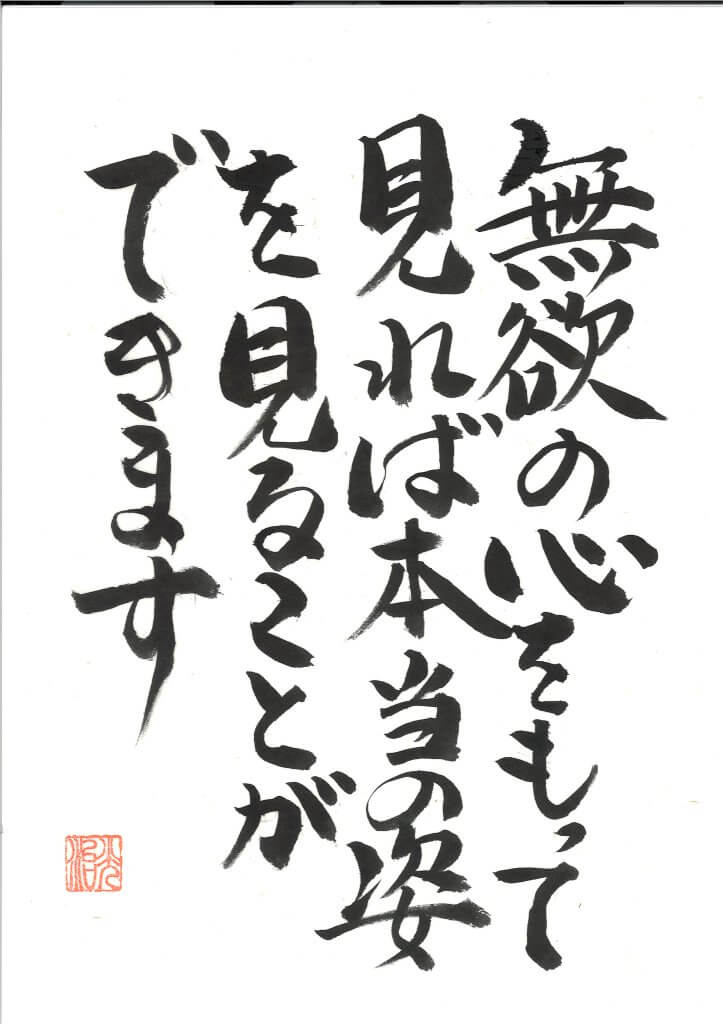 無欲の心をもって
見れば本当の姿
を見ることが
できます